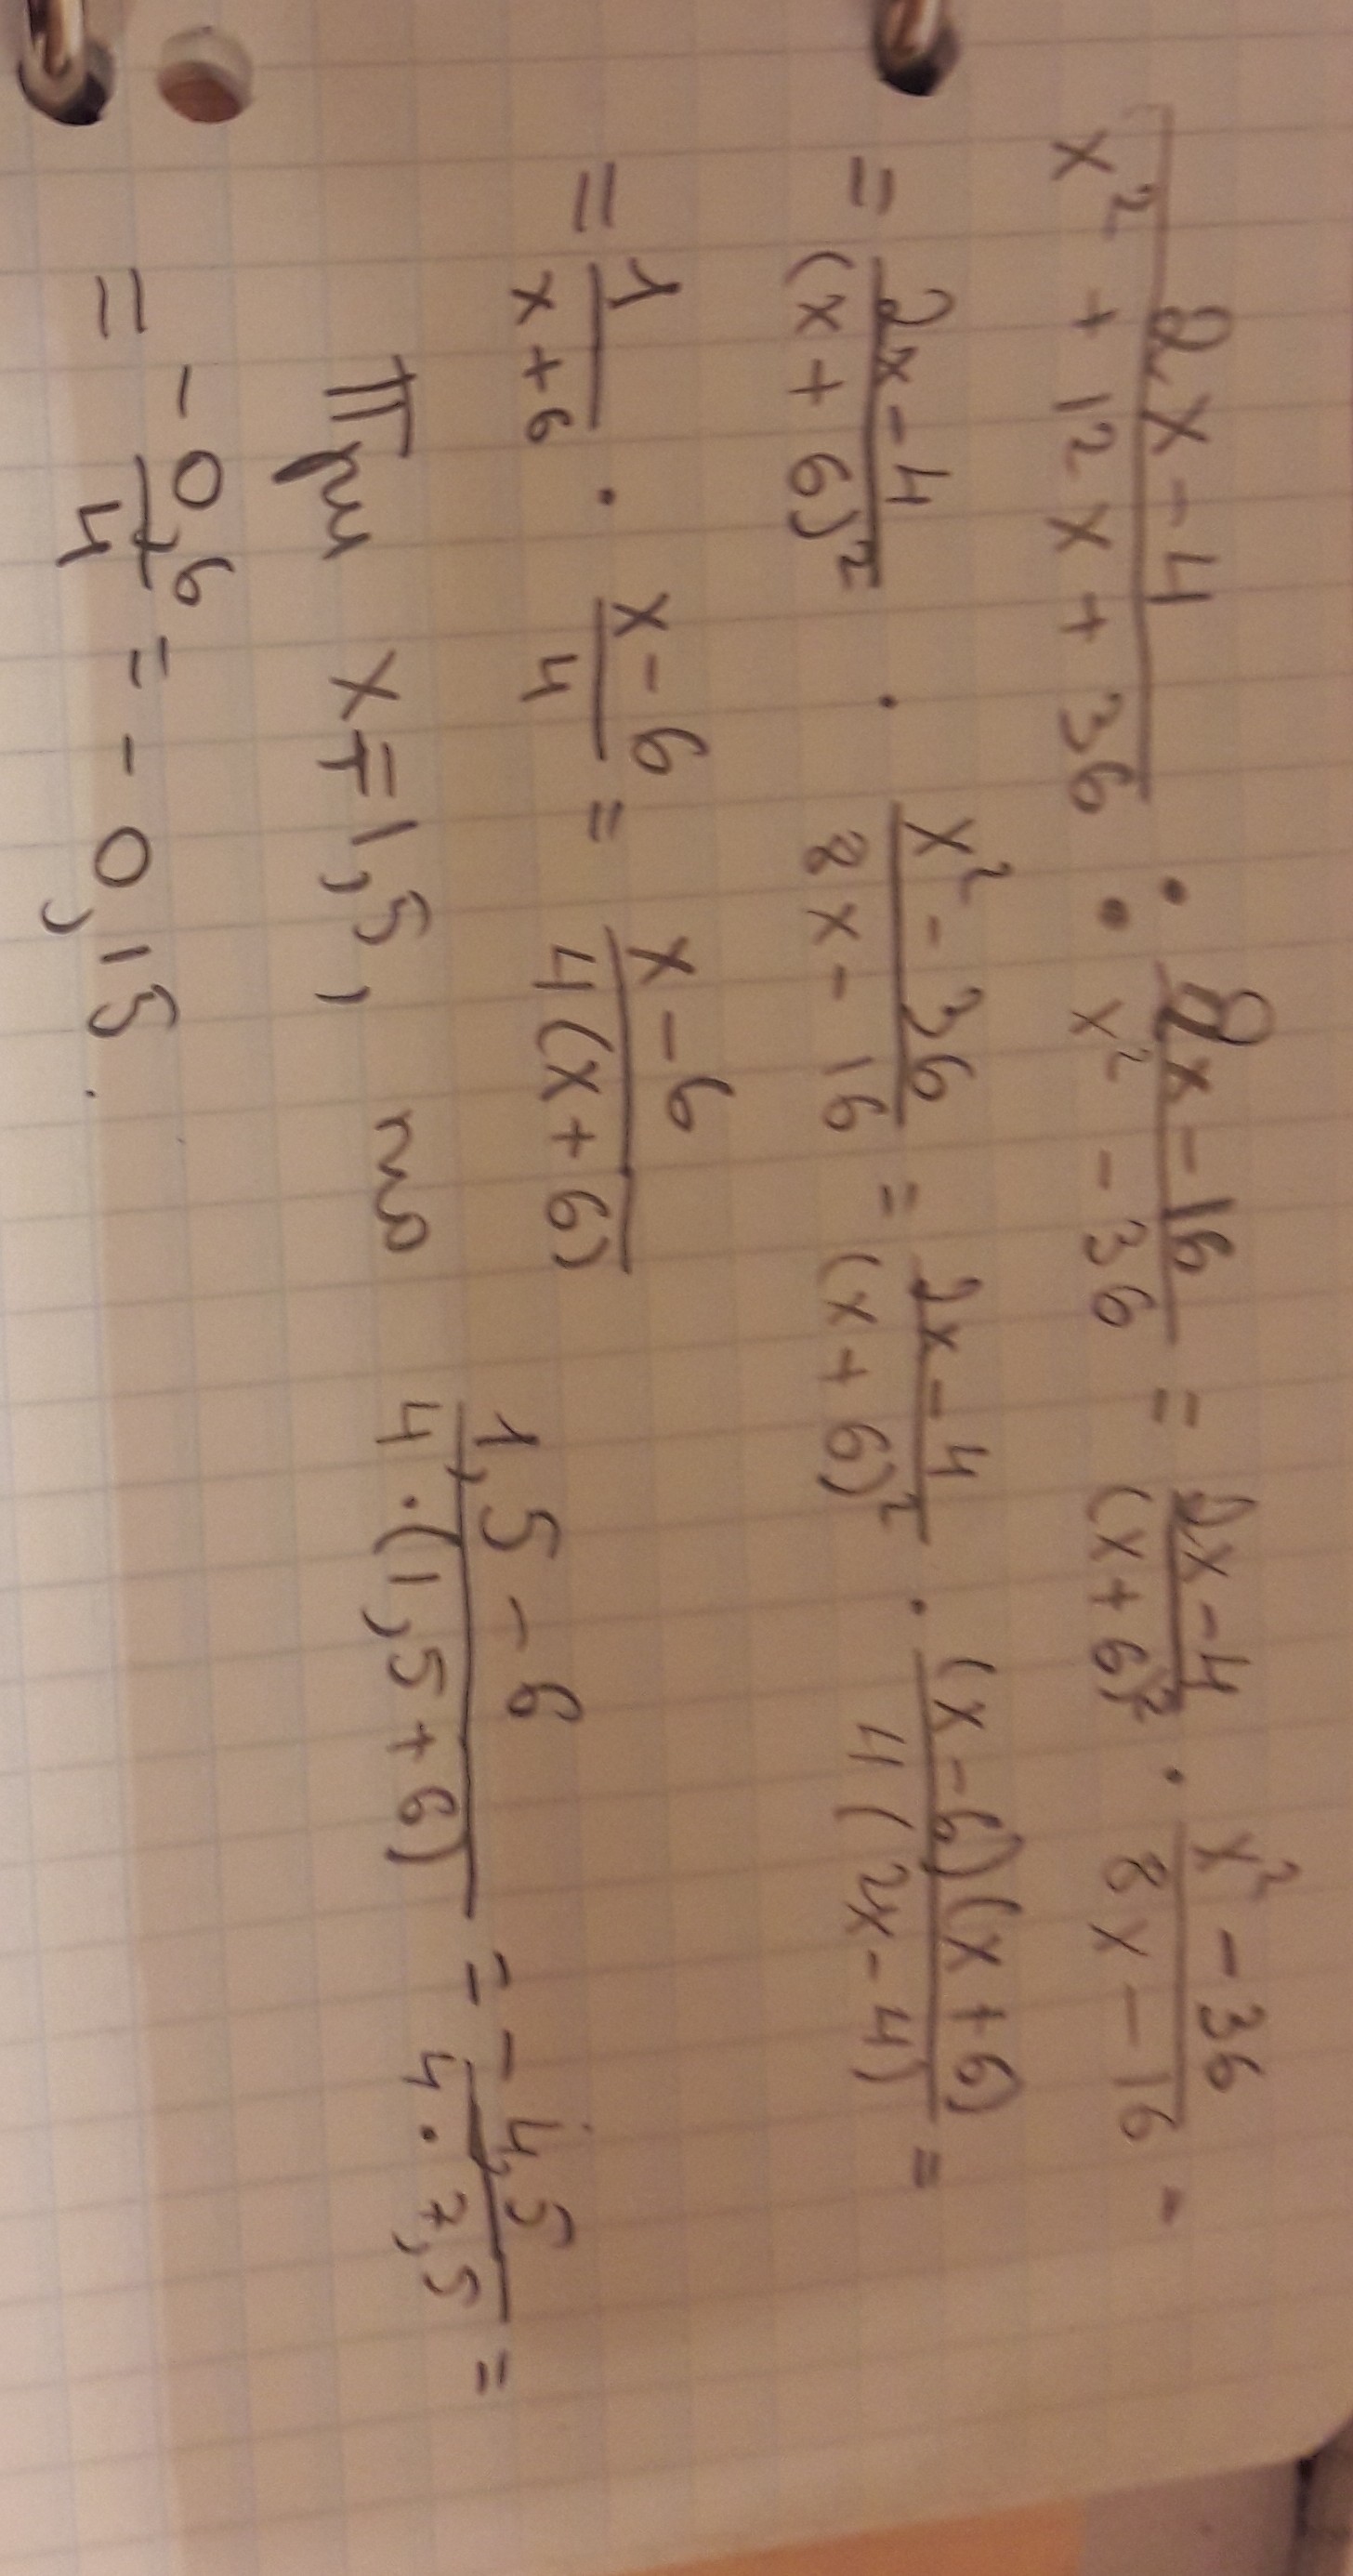 (2x-4)/(x²+12x+36) : (8x-16)/(x²-36) = (2x-4)/(x+6)² · (x²-36)/(8x-16) =
= (2x-4)/(x+6)² · (x²-36)/(8x-16) = (2x-4)/(x+6)² · (x-6)(x+6)/4(2x-4) =
= 1/(x+6) · (x-6)/4 = (x-6)/4(x+6)
При x=1,5, то (1,5-6)/(4·(1,5+6)) = -4,5/(4·7,5) =
= -0,6/4 = -0,15.